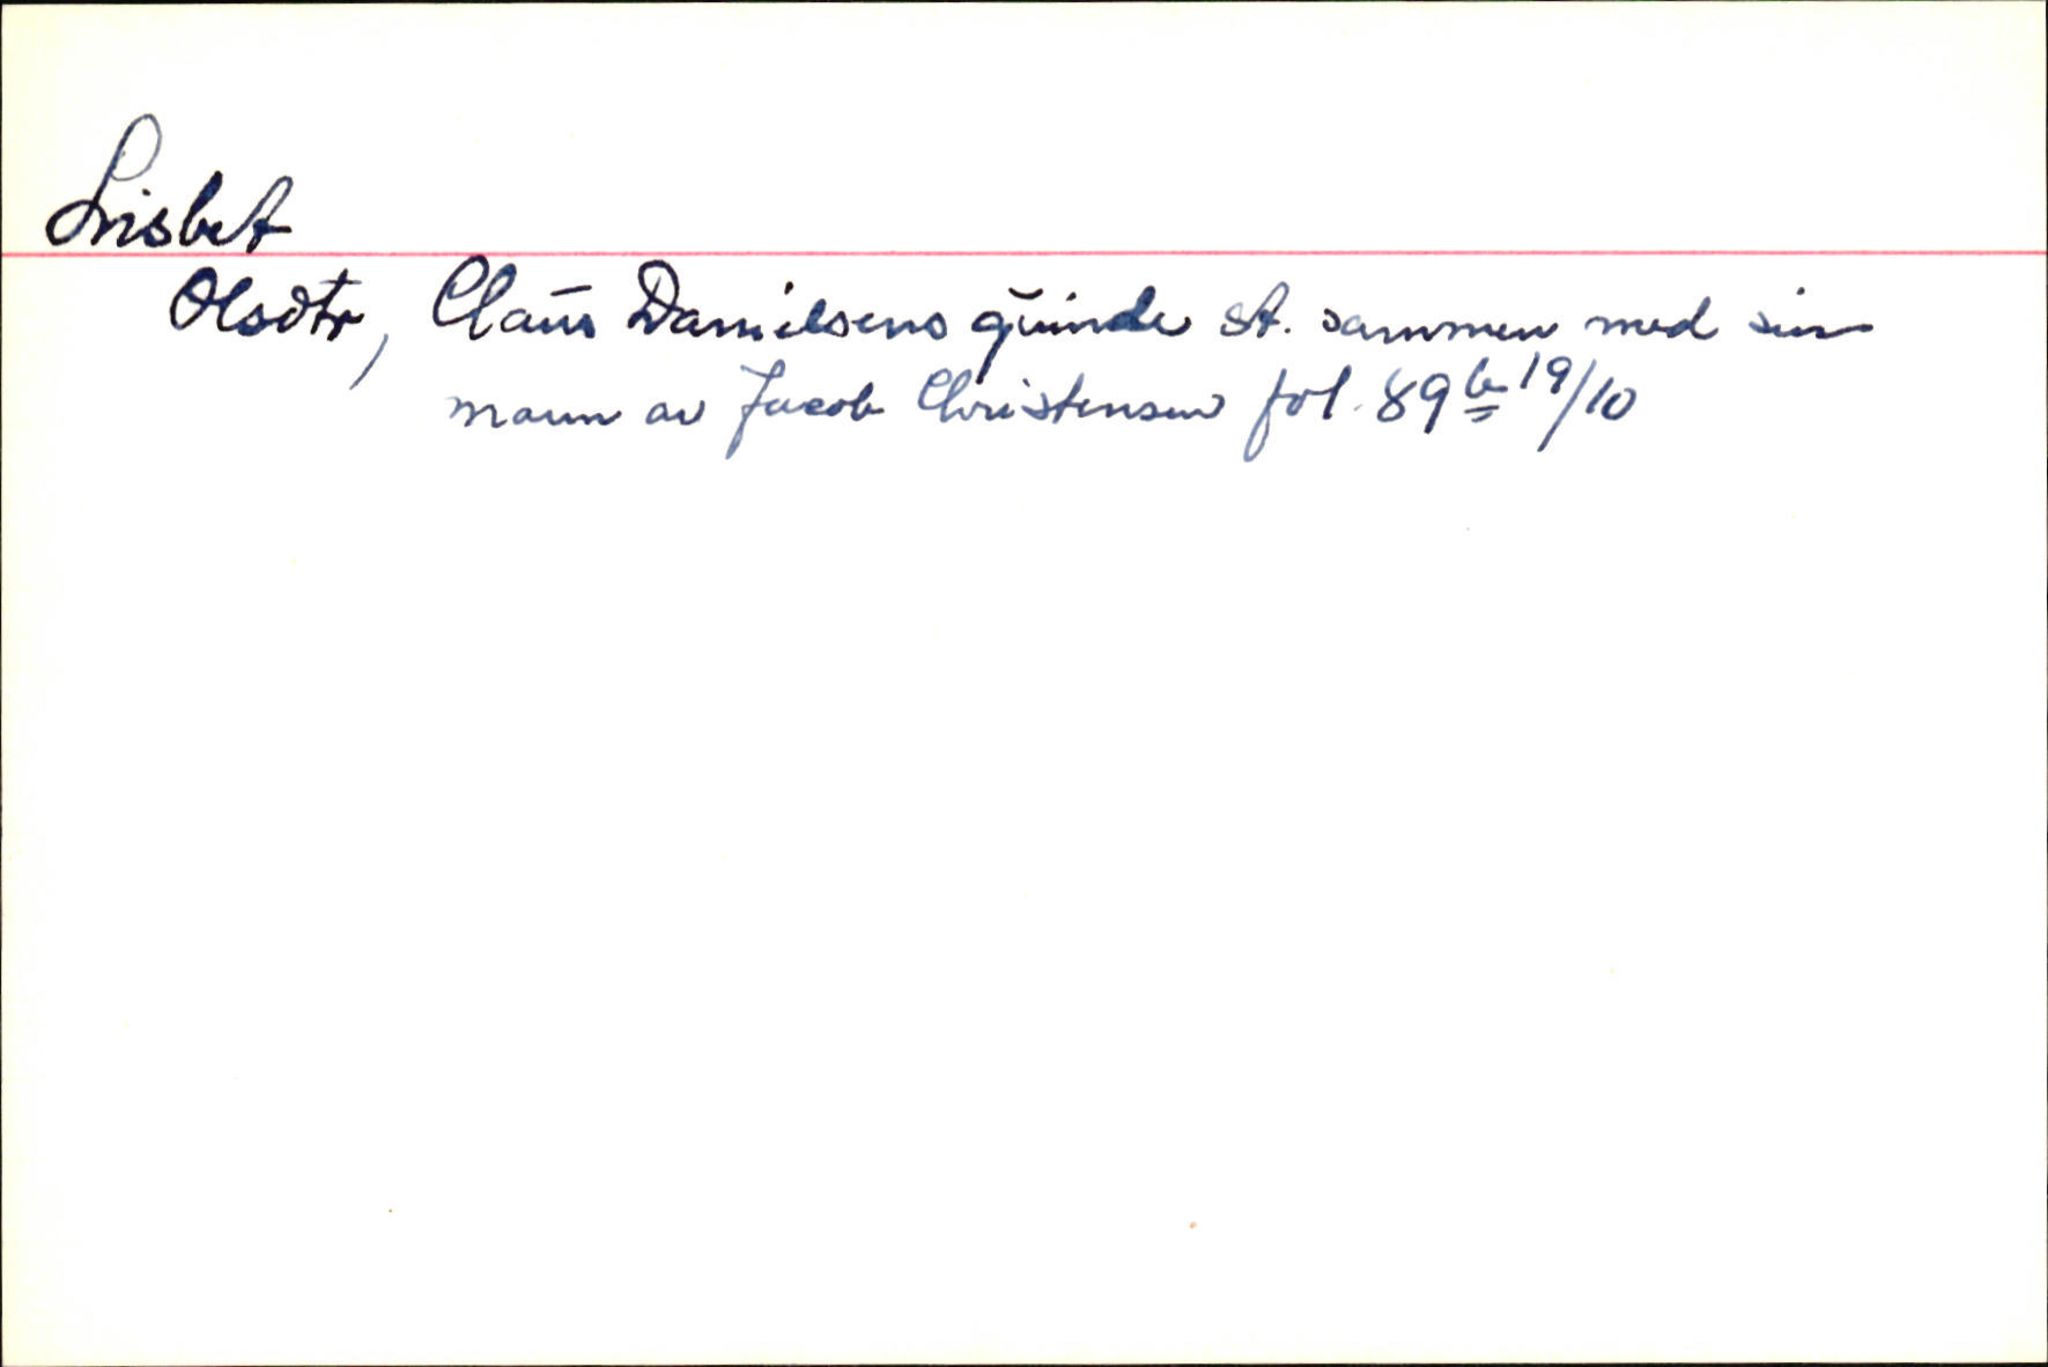 Lisbet
Olsdtr, Claus Danielsens quinde st. sammen med sin
mann av Jacob Christensen fol. 89 b 19/10